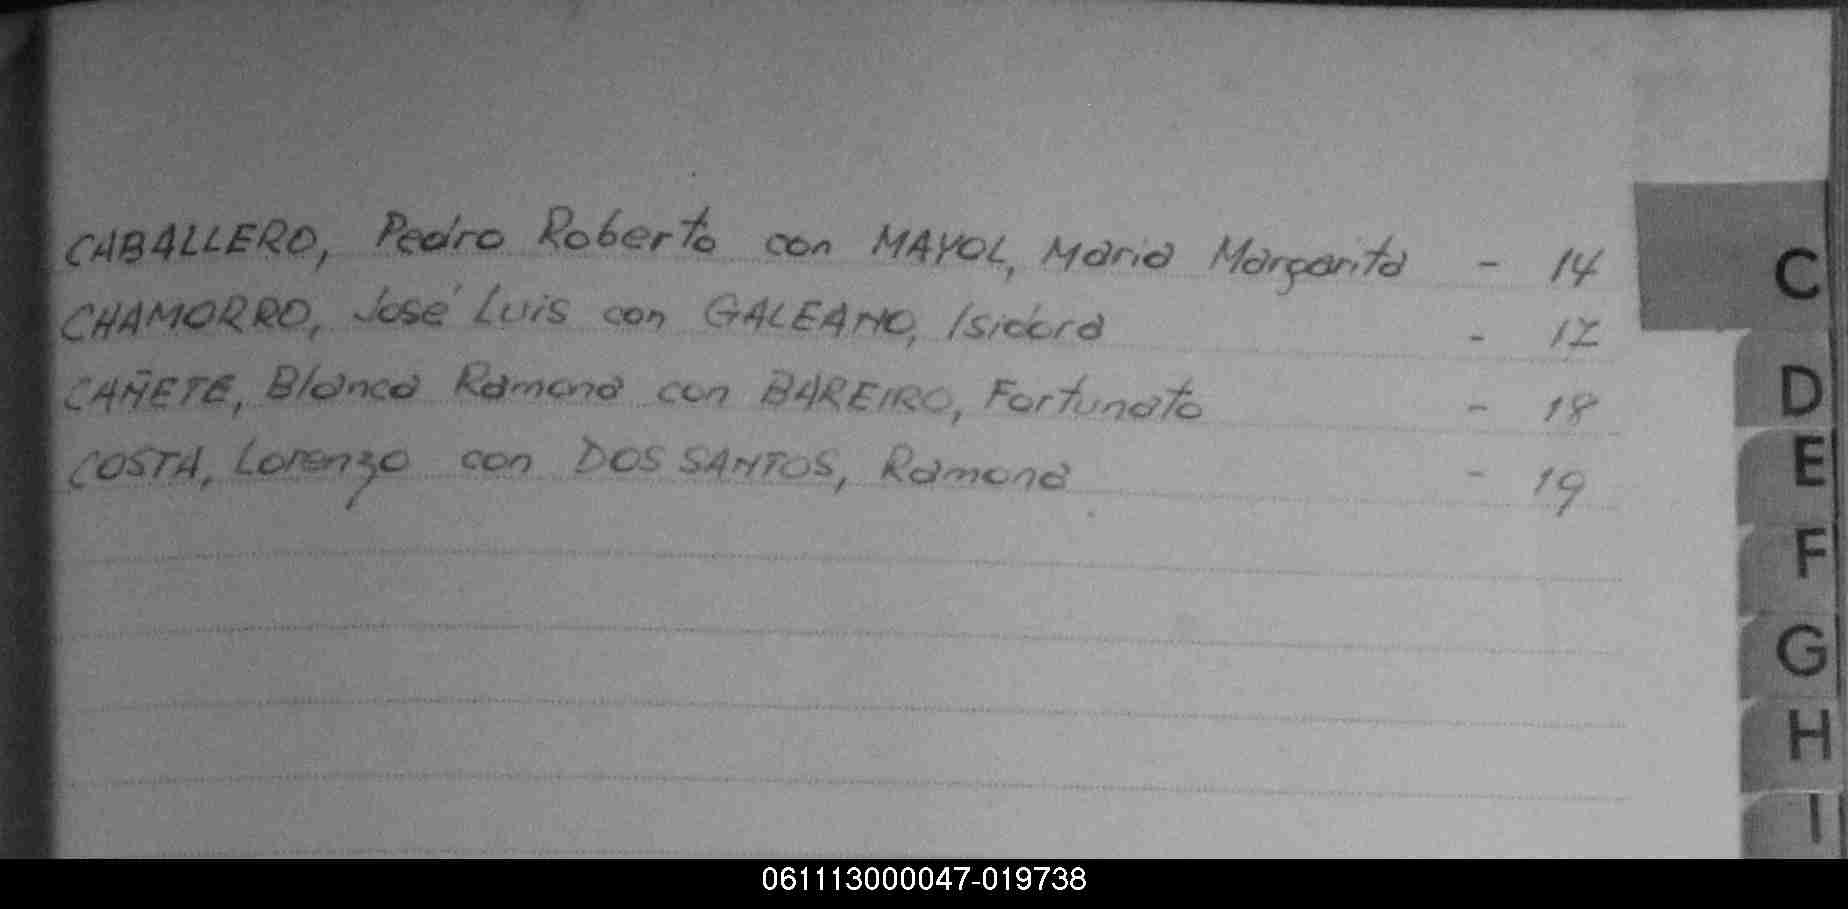 CABALLERO, Pedro Roberto con MAYOL, Maria Margarita - 14
CHAMORRO, José Luis con GALEANO, Isidora - 17
CAÑETE, Blanca Ramona con BAREIRO, Fortunato - 18
COSTA, Lorenzo con DOS SANTOS, Ramona - 19
C
D
E
F
G
H
I
061113000047-019738